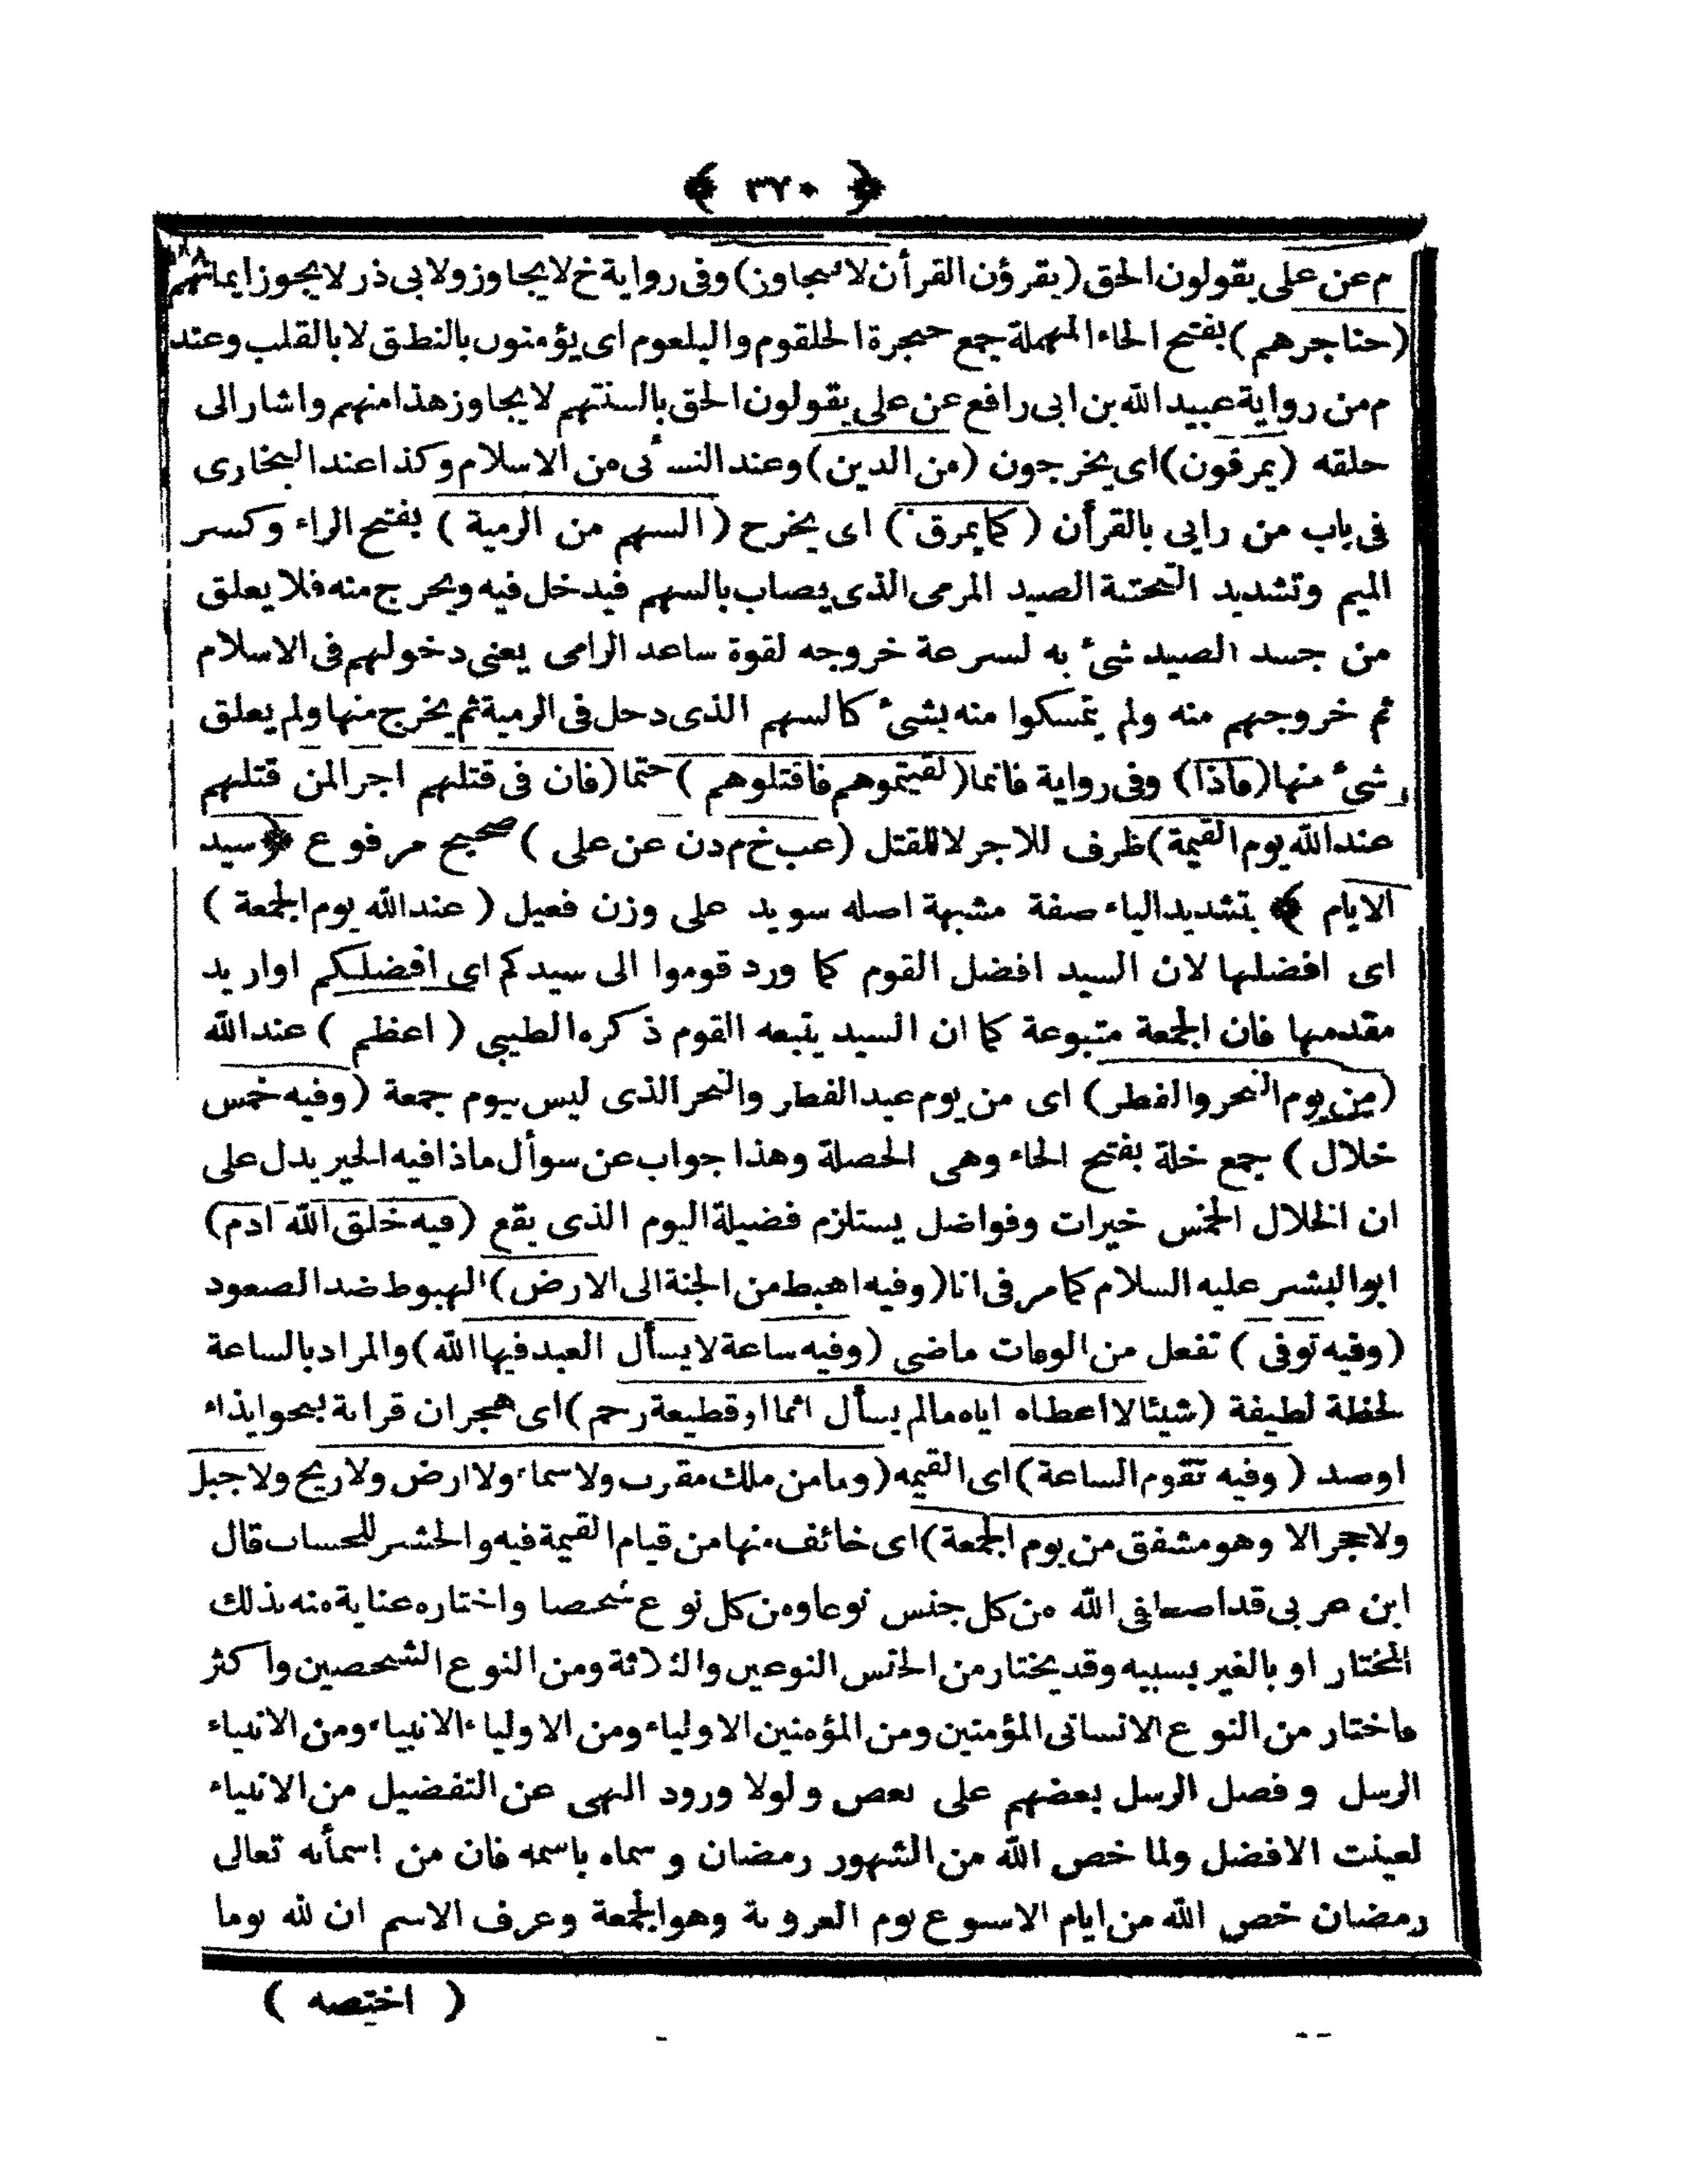 ﴿ ٣٧٠ ﴾
م عن على يقولون الحق (يقرؤن القرأن لا يجاوز) وفى رواية خ لا يجاوز ولابى ذر لا يجوز ايمانهم
(حناجرهم) بفتح الحاء المهملة جمع حنجرة الحلقوم والبلعوم اى يؤمنون بالنطق لا بالقلب وعند
م من رواية عبيد الله بن ابى رافع عن على يقولون الحق بالسنتهم لا يجاوز هذا منهم واشار الى
حلقه (يمرقون) اى يخرجون (من الدين) وعند النسأئى من الاسلام وكذا عند البخارى
فى باب من رايى بالقرأن (كما يمرق) اى يخرج (السهم من الرمية) بفتح الراء وكسر
الميم وتشديد التحتية الصيد المرمى الذى يصاب بالسهم فيدخل فيه ويخرج منه فلا يعلق
من جسد الصيد شىء به لسرعة خروجه لقوة ساعد الرامى يعنى دخولهم فى الاسلام
ثم خروجهم منه ولم يتمسكوا منه بشىء كالسهم الذى دخل فى الرمية ثم يخرج منها ولم يعلق
شىء منها (فاذا) وفى رواية فانما (لقيتموهم فاقتلوهم) حتما (فان فى قتلهم اجرا لمن قتلهم
عند الله يوم القيمة) ظرف للاجر لا للقتل (عب خ م د ن عن على) صحيح مرفوع ﴿ سيد
الايام ﴾ بتشديد الياء صفة مشبهة اصله سويد على وزن فعيل (عند الله يوم الجمعة)
اى افضلها لان السيد افضل القوم كما ورد قوموا الى سيدكم اى افضلكم او اريد
مقدمها فان الجمعة متبوعة كما ان السيد يتبعه القوم ذكره الطيبى (اعظم) عند الله
(من يوم النحر والفطر) اى من يوم عيد الفطر والنحر الذى ليس بيوم جمعة (وفيه خمس
خلال) جمع خلة بفتح الخاء وهى الخصلة وهذا جواب عن سوأل ماذا فيه الخير يدل على
ان الخلال الخمس خيرات وفواضل يستلزم فضيلة اليوم الذى يقع (فيه خلق الله ادم)
ابو البشر عليه السلام كما مر فى انا (وفيه اهبط من الجنة الى الارض) الهبوط ضد الصعود
(وفيه توفى) تفعل من الوفات ماضى (وفيه ساعة لا يسأل العبد فيها الله) والمراد بالساعة
لحظة لطيفة (شيئا الا اعطاه اياه مالم يسأل اثما او قطيعة رحم) اى هجران قرابة بنحو ايذاء
او صد (وفيه تقوم الساعة) اى القيمه (وما من ملك مقرب ولا سماء ولا ارض ولا ريح ولا جبل
ولا حجر الا وهو مشفق من يوم الجمعة) اى خائف منها من قيام القيمة فيه والحشر للحساب قال
ابن عربى قد اصطفى الله من كل جنس نوعا ومن كل نوع شخصا واختاره عناية منه بذلك
المختار او بالغير بسببه وقد يختار من الجنس النوعين والثلاثة ومن النوع الشخصين واكثر
فاختار من النوع الانسانى المؤمنين ومن المؤمنين الاولياء ومن الاولياء الانبياء ومن الانبياء
الرسل وفضل الرسل بعضهم على بعض ولولا ورود النهى عن التفضيل من الانبياء
لعينت الافضل ولما خص الله من الشهور رمضان وسماه باسمه فان من اسمأئه تعالى
رمضان خص الله من ايام الاسبوع يوم العروبة وهو الجمعة وعرف الاسم ان لله يوما
( اختصه )